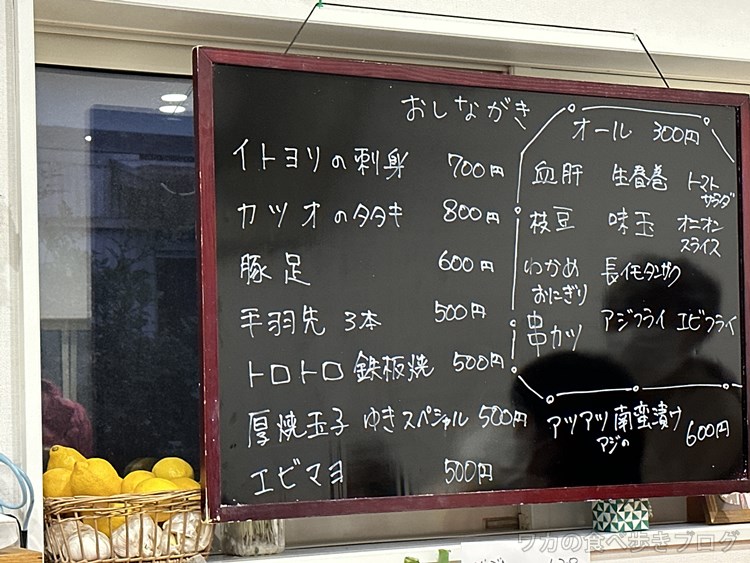 おしながき
イトヨリの刺身 700円
カツオのタタキ 800円
豚足 600円
手羽先 3本 500円
トロトロ鉄板焼 500円
厚焼玉子 ゆきスペシャル 500円
エビマヨ 500円
オール 300円
血肝 生春巻 トマト
サラダ
枝豆 味玉 オニオン
スライス
わかめ 長イモタンザク
おにぎり
串カツ アジフライ エビフライ
アツアツ南蛮漬け 600円
アジの
ワカの食べ歩きブログ